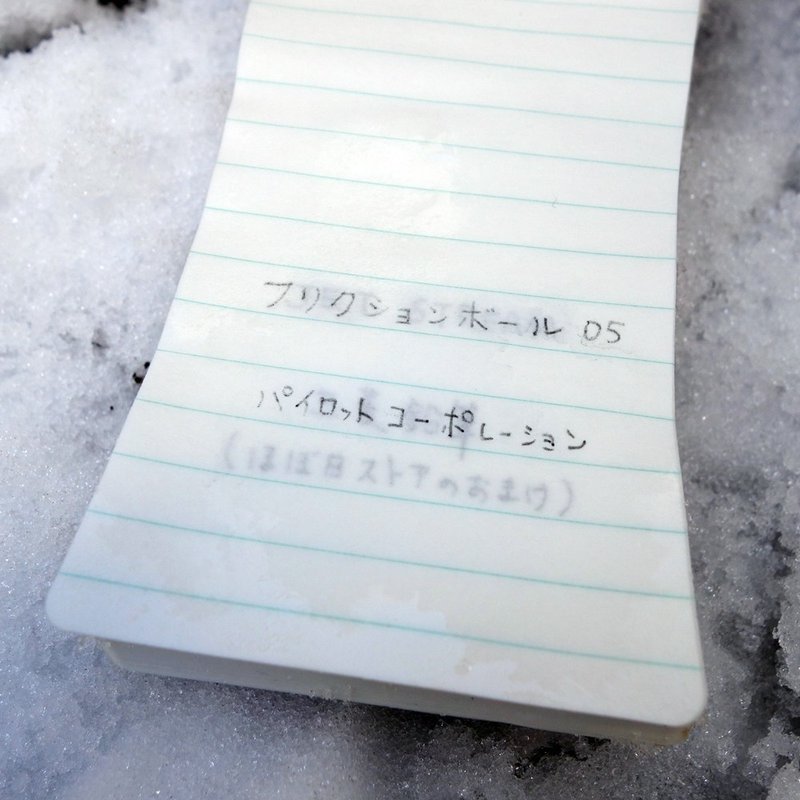 フリクションボール 05
パイロットコーポレーション
(ほぼ日ストアのおまけ)